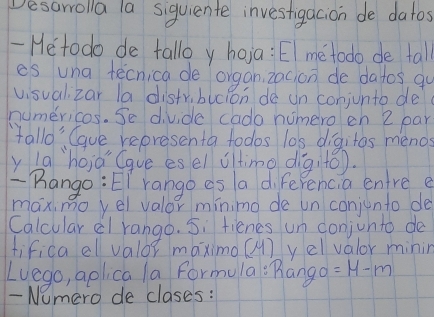 Desarrolla la siguiente investigación de datos
- Método de tallo y hoja: El método de tall
es una técnica de organización de datos qu
visualizar la distribución de un conjunto de
numéricos. Se divide cada número en 2 par
"tallo" (que representa todos los dígitos menos
y la "hoja" (que es el último dígito).
- Rango: El rango es la diferencia entre e
máximo y el valor mínimo de un conjunto de
Calcular el rango. Si tienes un conjunto de
tifica el valor máximo (M) y el valor minim
Luego, aplica la formula: Rango = M-m
- Número de clases: